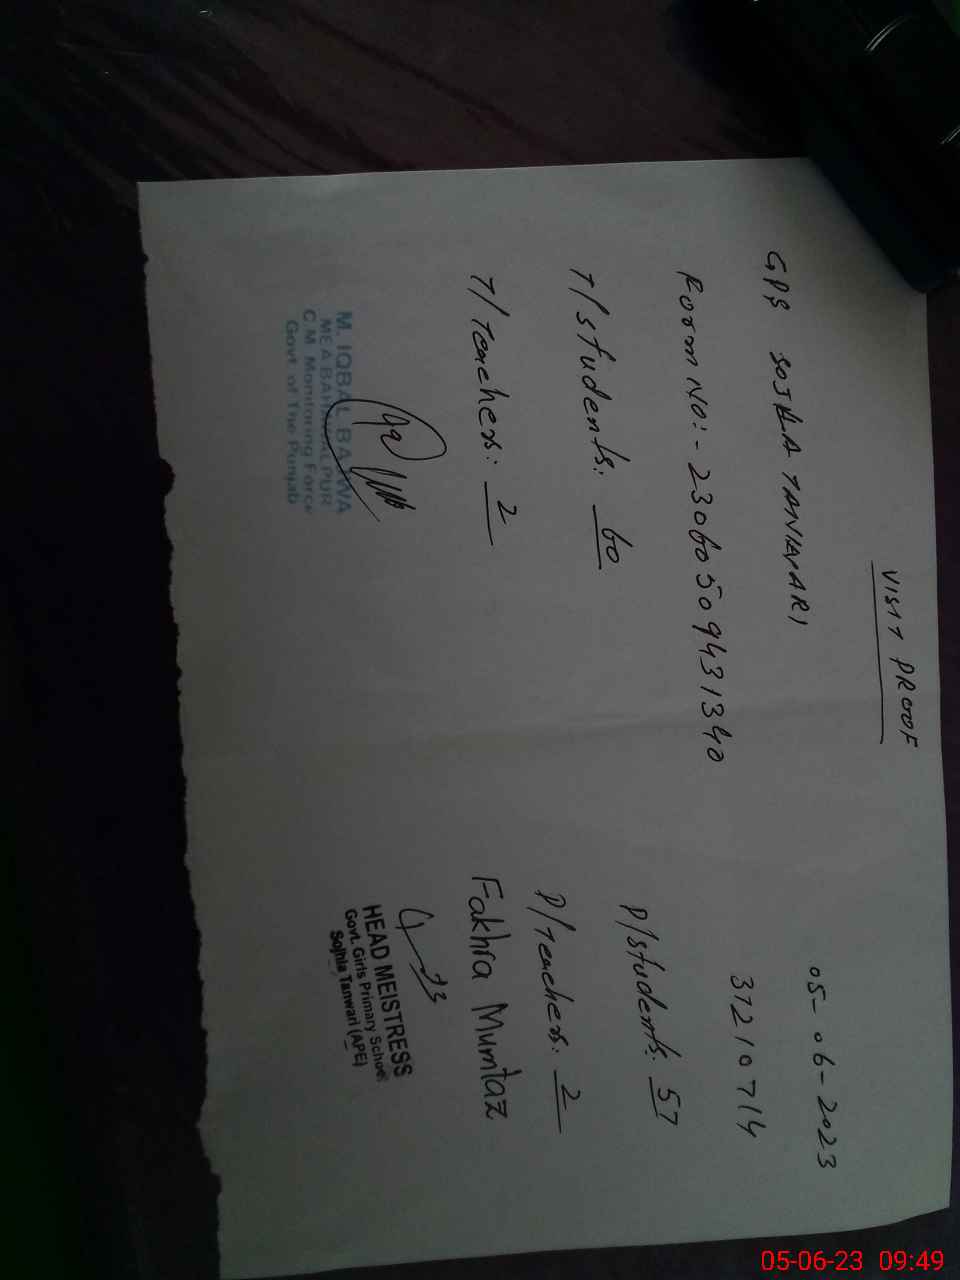 VISIT PROOF
GPS SOJHLA TANWARI
05-06-2023
Room No:- 23060509431340
31210714
T/students: 60
P/students: 57
T/Teachers: 2
P/Teachers: 2
Fakhra Mumtaz
M. IQBAL BAJWA
MEA BAHAWALPUR
C.M. Monitoring Force
Govt. of The Punjab
HEAD MEISTRESS
Govt. Girls Primary School
Sojhla Tanwari (APE)
05-06-23 09:49